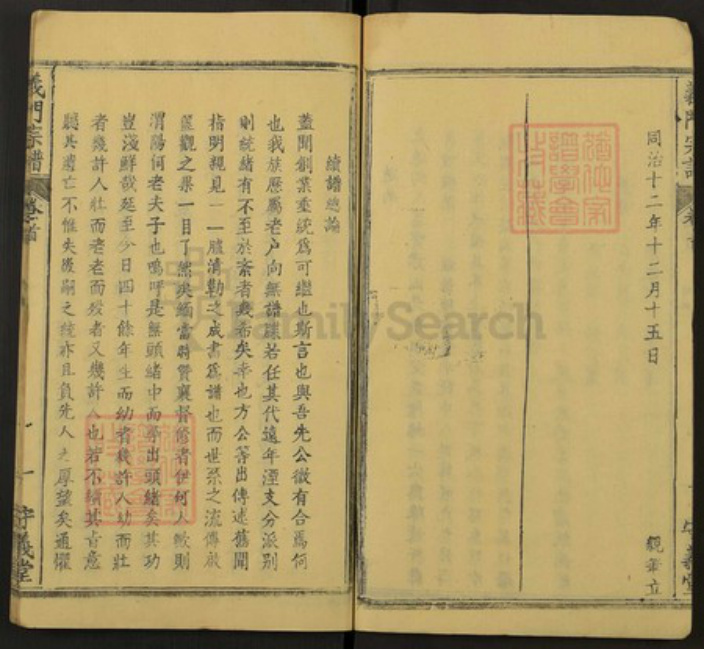 同治十二年十二月十五日
義門宗譜
卷首
守義堂
續譜總論
蓋聞創業垂統為可繼也斯言也與吾先公微有合焉何
也我族歷屬老户向無譜牒若任其代遠年湮支分派別
則統緒有不至於紊者幾希矣幸也方公等出傳述舊聞
指明親見一一臚清勒之成書為譜也而世系之流傳故
篋觀之果一目了然矣緬當時贊襄督修者伊何人歟則
渭陽何老夫子也嗚呼是無頭緒中而尋出頭緒矣其功
豈淺鮮哉延至今日四十餘年生而幼者幾許人幼而壯
者幾許人壯而老老而歿者又幾許人也若不續其旨意
聽其遺亡不惟失後嗣之統亦且負先人之厚望矣通懼
義門宗譜
卷首
一
守義堂
FamilySearch